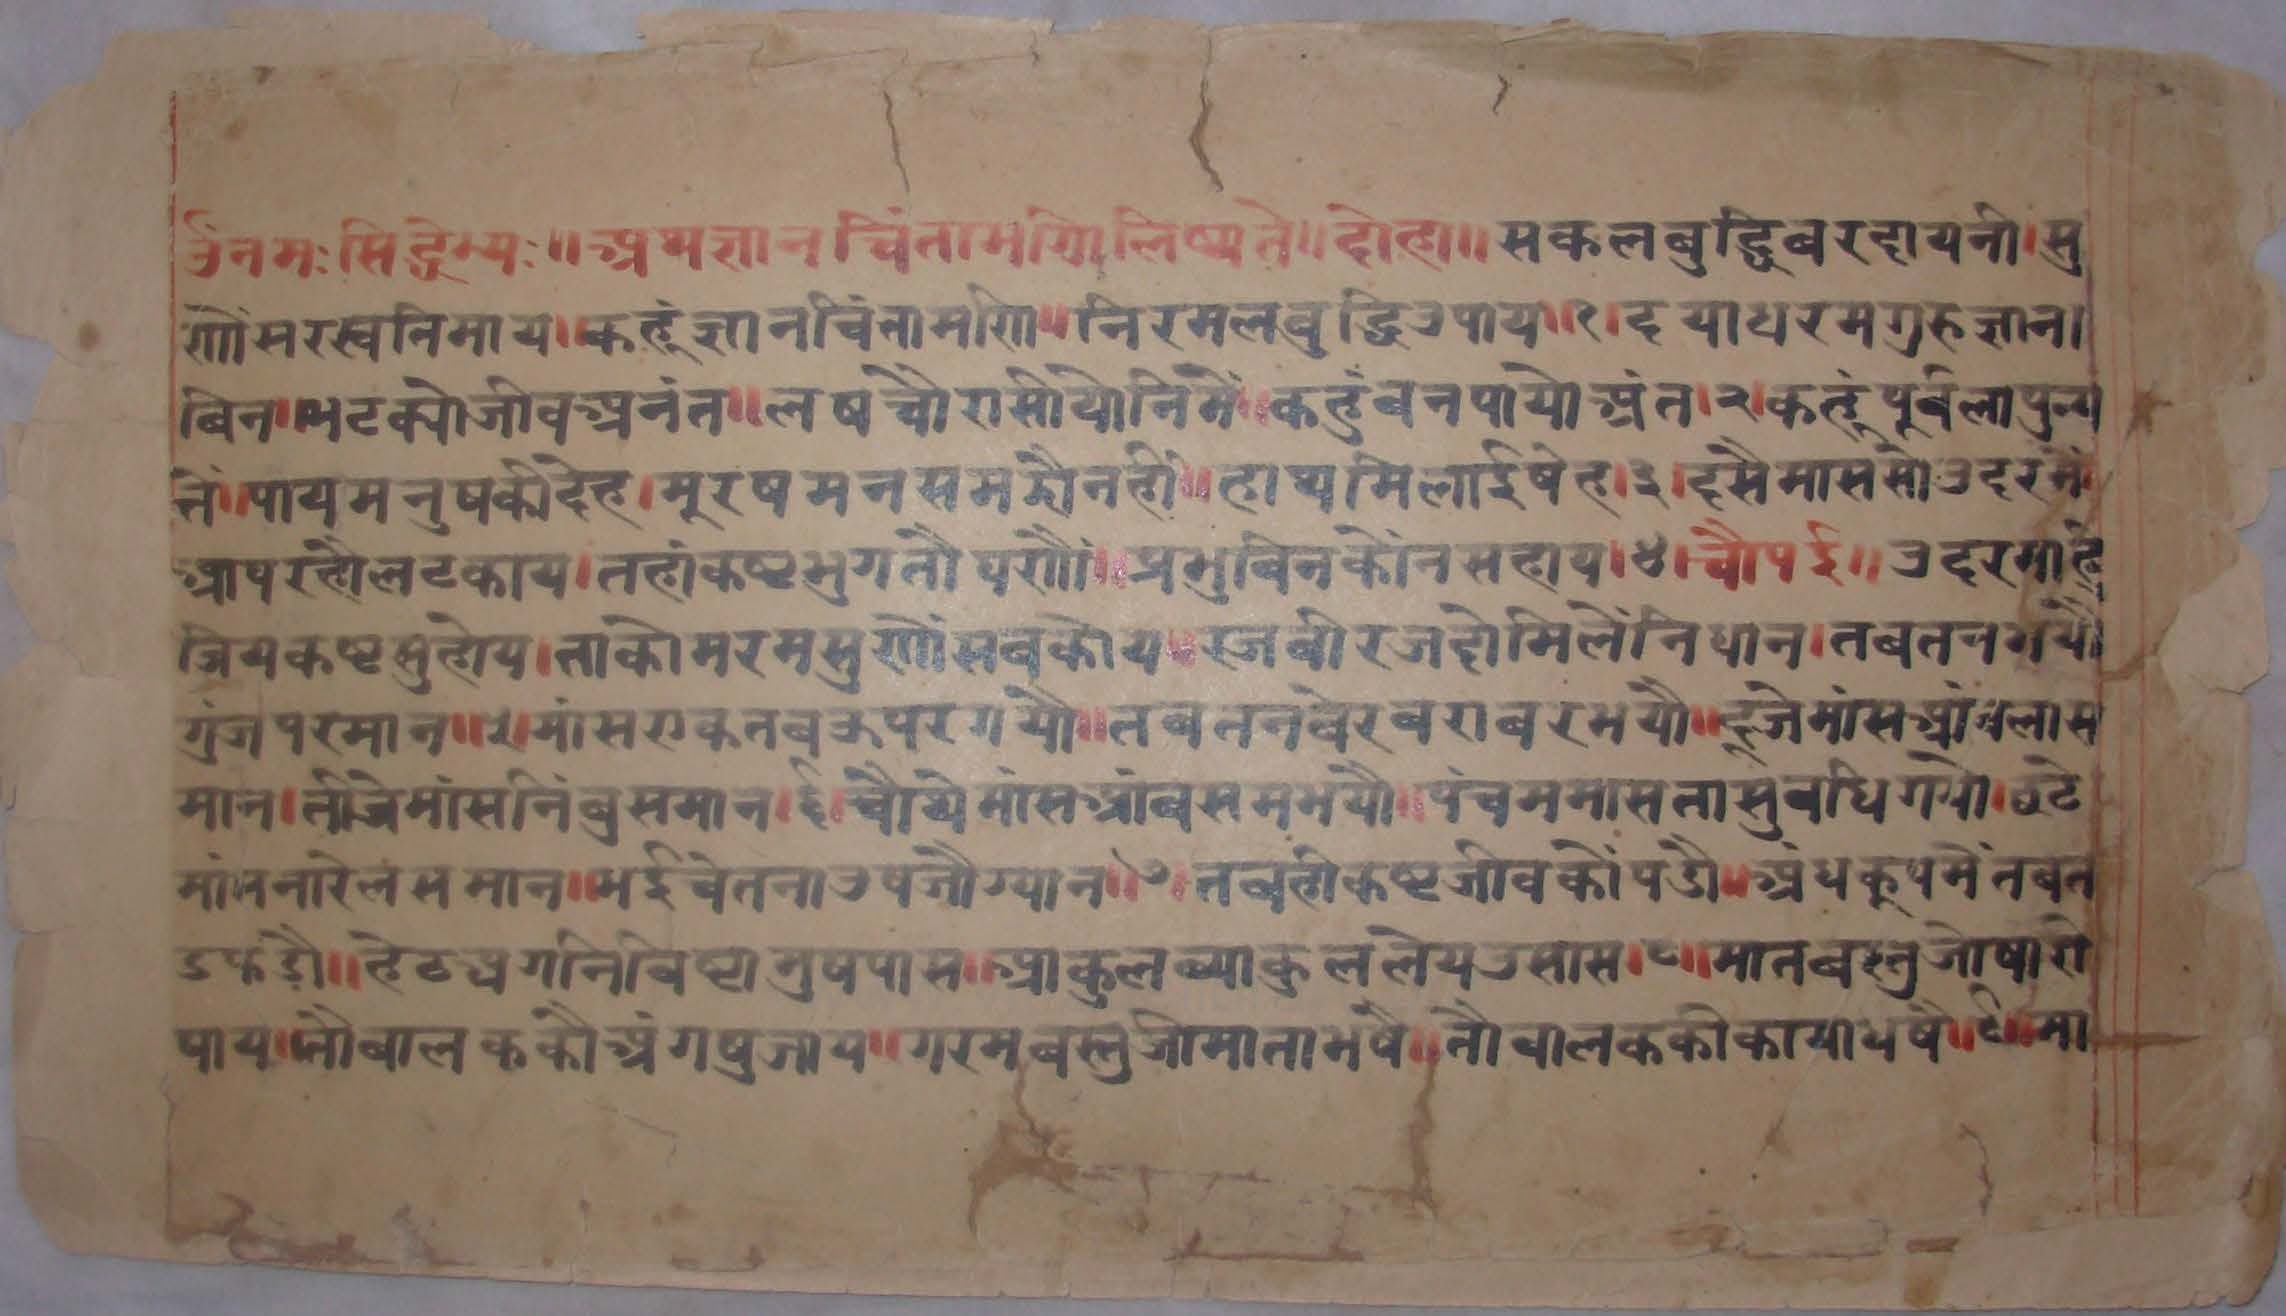 उंनमःसिद्धेभ्यः॥अथज्ञानचिंतामणिलिष्यते॥दोहा॥सकलबुद्धिबरदायनी।सु
णौंसरस्वतिमाय।कहूंज्ञानचिंतामणि॥निरमलबुद्धिउपाय॥१।दयाधरमगुरुज्ञान।
बिन।भटक्योजीवअनंत॥लषचौरासीयोनिमें॥कहुंबनपायोअंत।२।कहूंपूर्बलापुन्य
तें॥पायमनुषकीदेह।मूरषमनसमझैनही॥हाथमिलाईषेह।३।दसैमाससोउदरमें
आपरह्यौलटकाय।तहांकष्टभुगतौघणौं॥प्रभुबिनकोंनसहाय।४।चौपई॥उदरमांहि
जियकष्टसुहोय।ताकोमरमसुणौंसबकोय॥रजबीरजदोमिलेंनिधान।तबतनगयौ
गुंजपरमान॥५।मांसएकतबऊपरगयौ॥तबतनबेरबराबरभयौ॥दूजेमांसआंवलास
मान।तीजेमांसनिंबुसमान।६।चौथेमांसआंबसमभयौ॥पंचममांसतासुबधिगयो।छठे
मांसनारेलसमान॥भईचेतनाउपजौग्यान॥७।तबहीकष्टजीवकोंपडौ॥अंधकूपमेंतबत
डफडौ॥हेठअगनिविष्टामुषपास॥आकुलव्याकुललेयउसास।८॥मातबस्तुजोषारी
षाय॥तौबालककौअंगषुजाय॥गरमबस्तुजोमाताभषै॥तौबालककीकायाधषै॥९॥मा